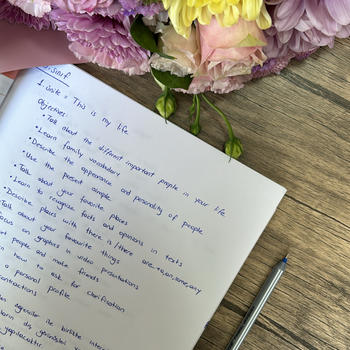 .Sınıf
1. ünite = This is my life
Objectives:
• Talk about the different important people in your life
• Learn family vocabulary
• Describe the appearance and personality of people
• Use the present simple
• Talk about your favourite places
• Learn to recognise facts and opinions in texts
• Describe places with there is / there are-to,an,some,any
Talk about your favourite things
ocus on graphics in video presentations
et people and make friends
n how to ask for clarification
a personal profile
contractions
ile birlikte